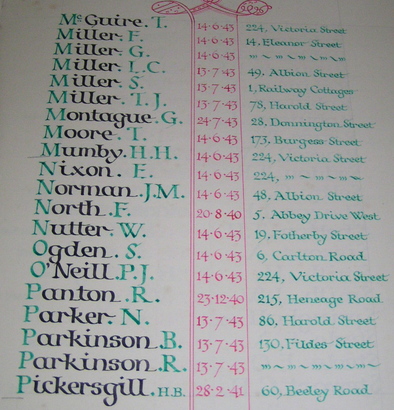 McGuire. T. 14·6·43 224, Victoria Street
Miller. F. 14·6·43 14, Eleanor Street
Miller. G. 14·6·43 " ~ " ~ " ~ " ~
Miller. L.C. 13·7·43 49, Albion Street
Miller. S. 13·7·43 1, Railway Cottages
Miller. T.J. 13·7·43 78, Harold Street
Montague. G. 24·7·43 28, Donnington Street
Moore. T. 14·6·43 173, Burgess Street
Mumby. H.H. 14·6·43 224, Victoria Street
Nixon. E. 14·6·43 224, " ~ " ~ " ~
Norman. J.M. 14·6·43 48, Albion Street
North. F. 20·8·40 5, Abbey Drive West
Nutter. W. 14·6·43 19, Fotherby Street
Ogden. S. 14·6·43 6, Carlton Road
O'Neill. P.J. 14·6·43 224, Victoria Street
Panton. R. 23·12·40 215, Heneage Road
Parker. N. 13·7·43 86, Harold Street
Parkinson. B. 13·7·43 130, Fildes Street
Parkinson. R. 13·7·43 " ~ " ~ " ~ " ~
Pickersgill. H.B. 28·2·41 60, Beeley Road